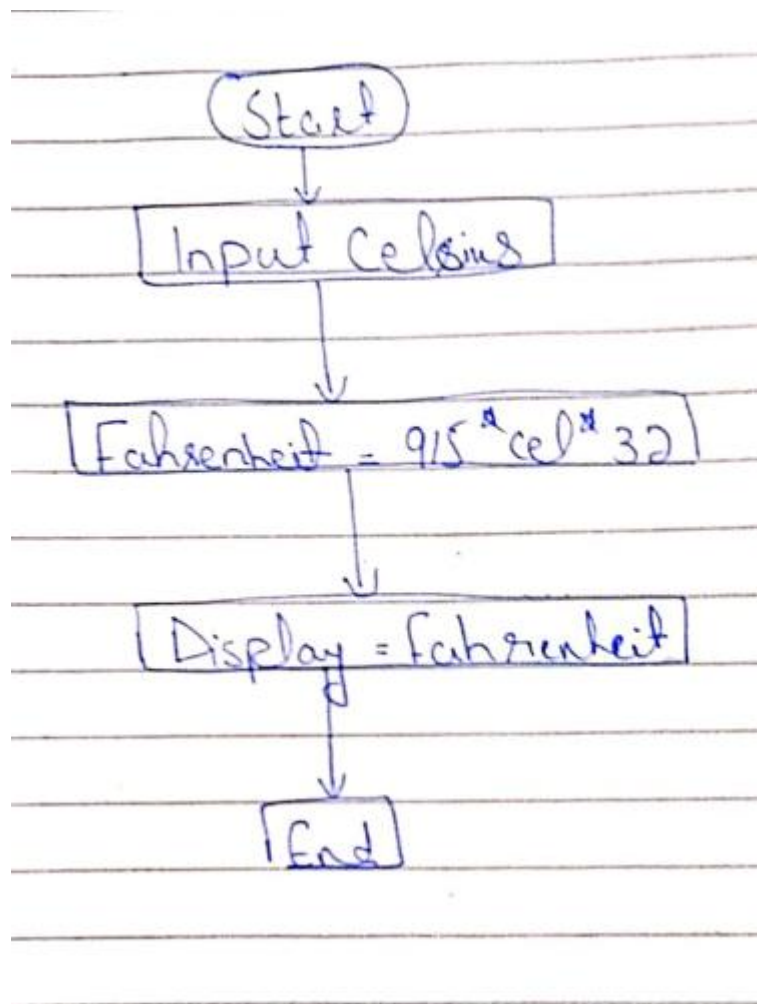 Start
Input Celsius
Fahrenheit = 915 * cel * 32
Display = Fahrenheit
End